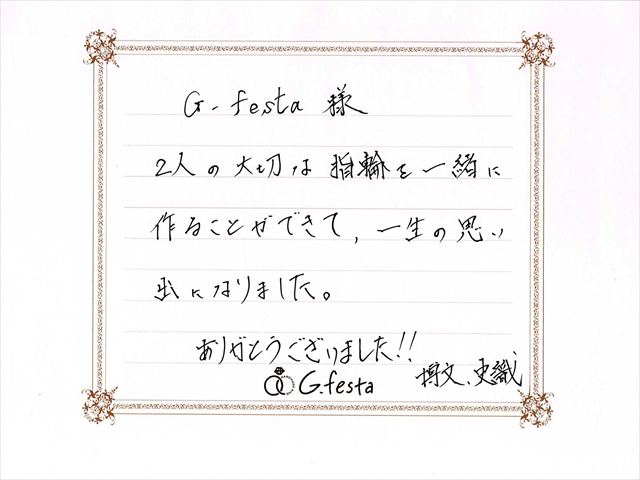 G.festa 様
2人の大切な指輪を一緒に
作ることができて、一生の思い
出になりました。
ありがとうございました!!
G.festa
博文、史織